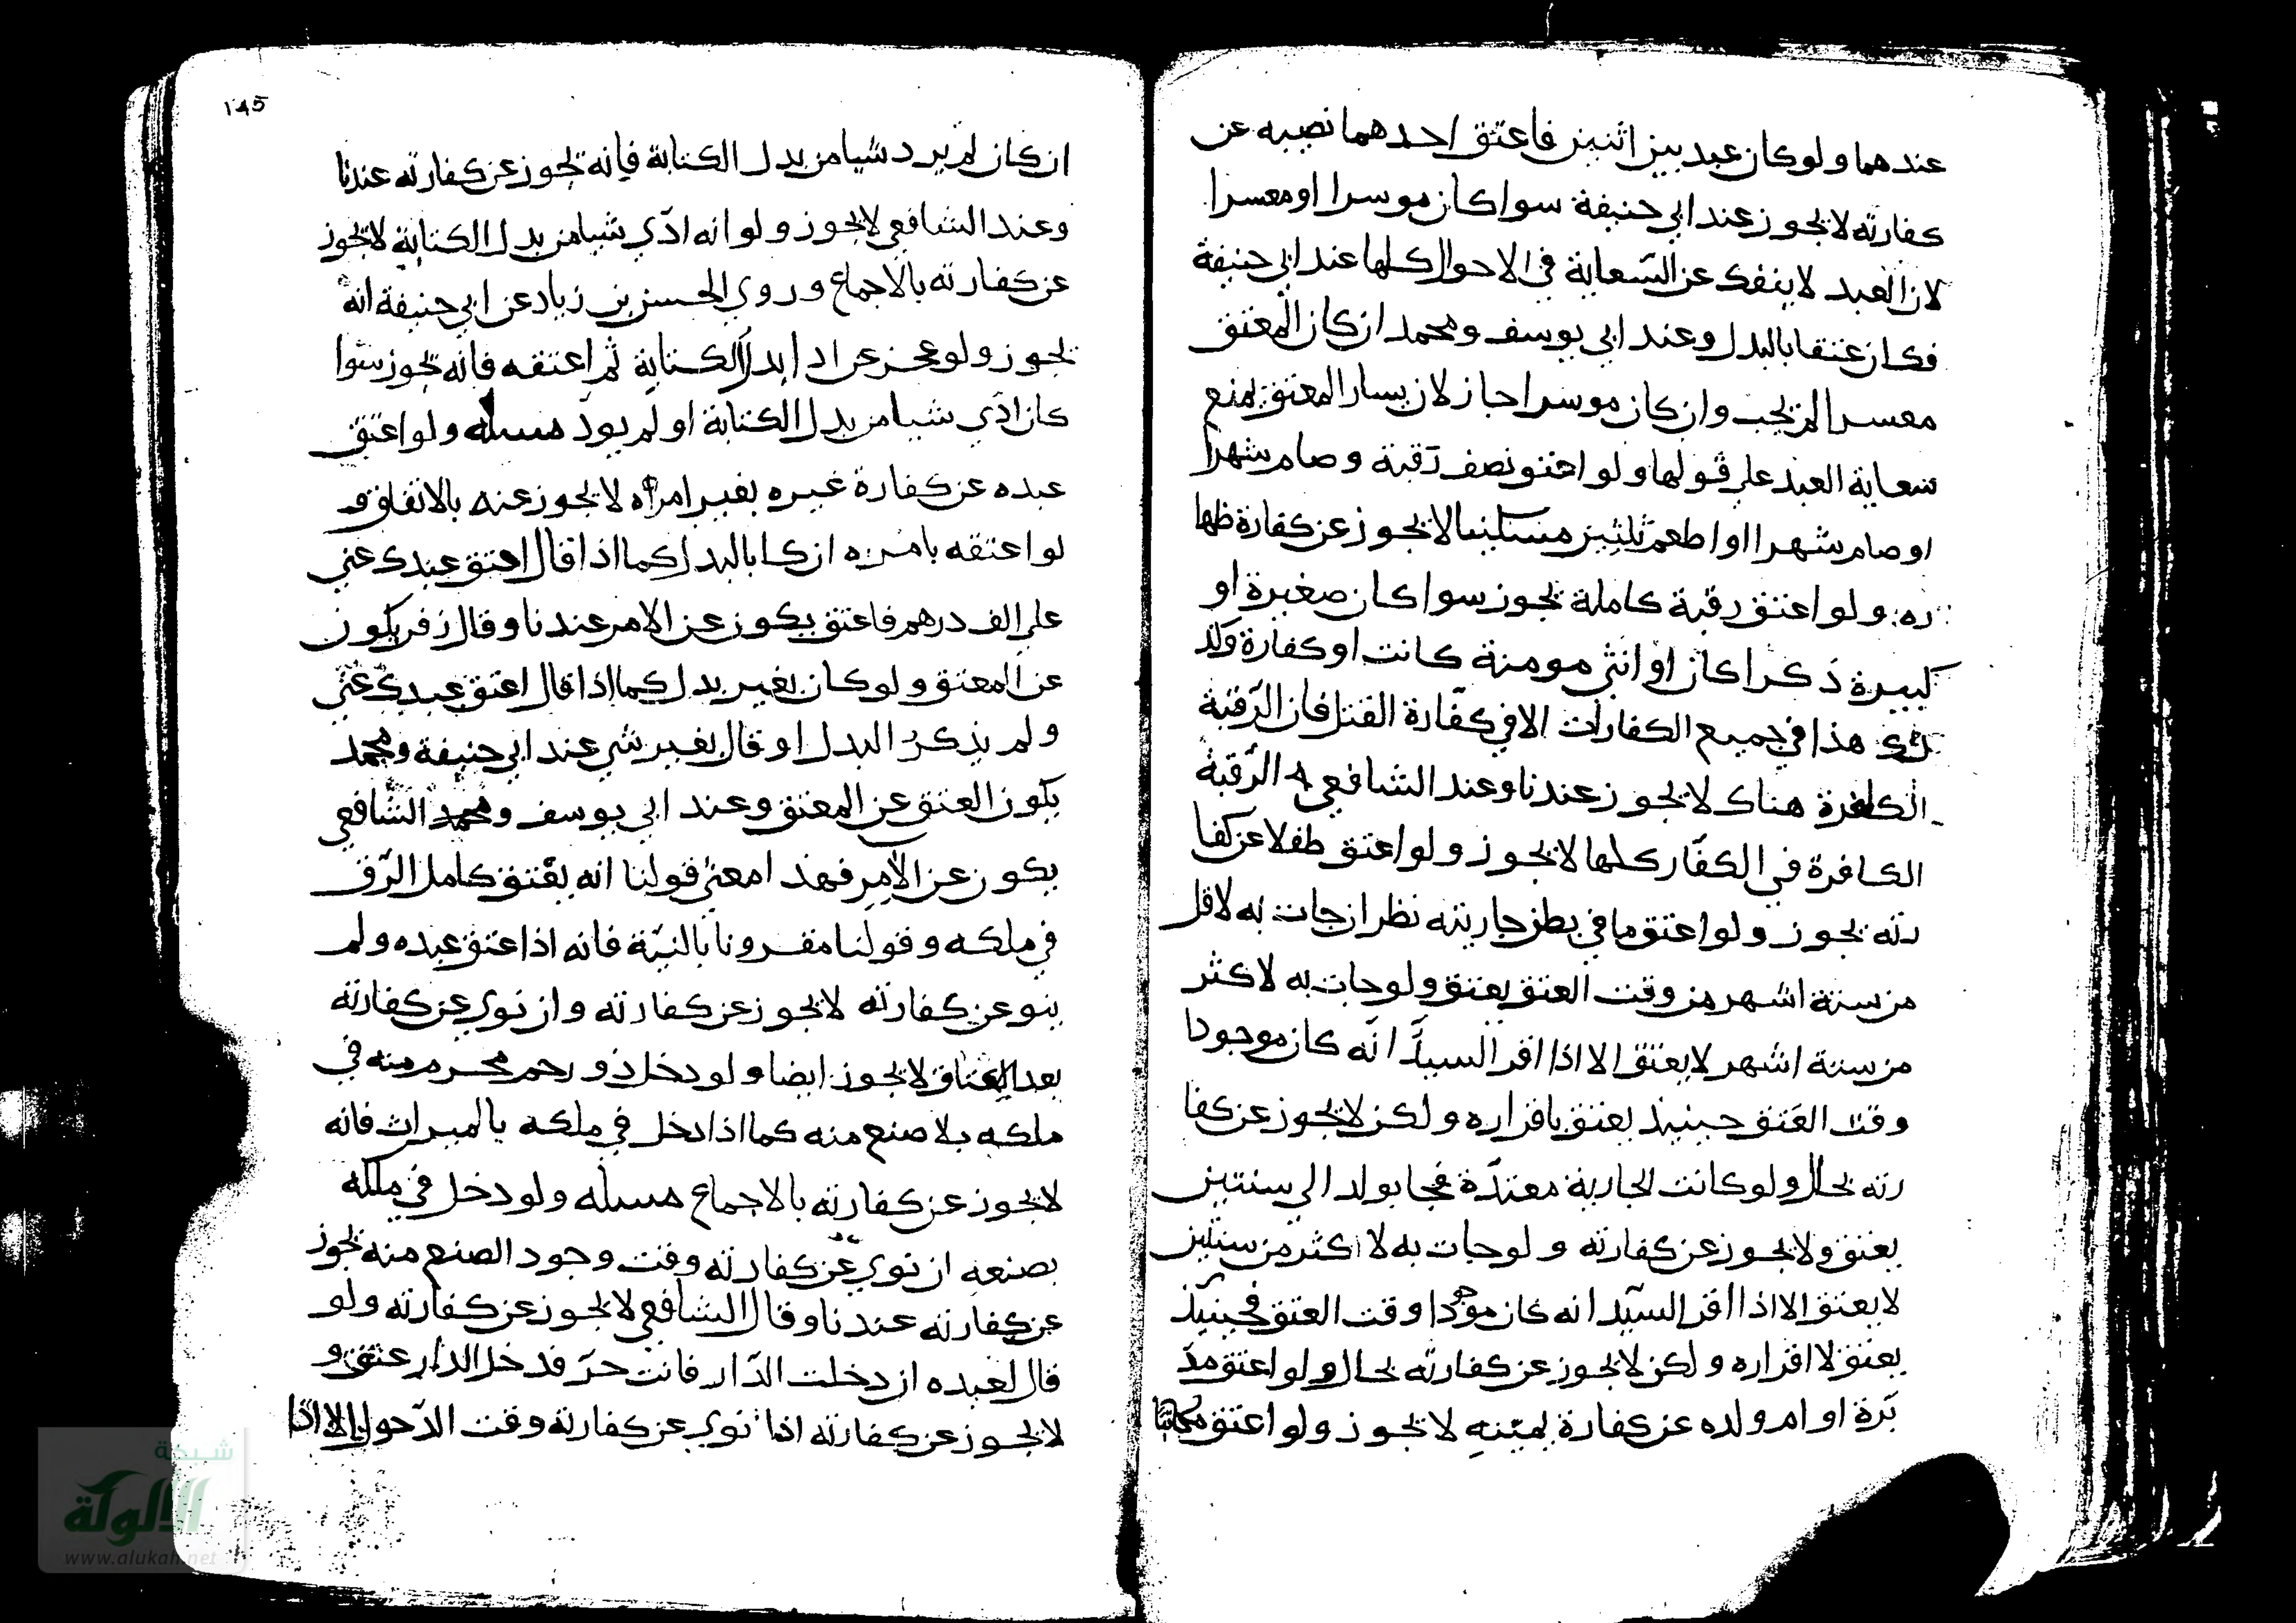 عندهما ولو كان عبد بين اثنين فاعتق احدهما نصيبه عن
كفارته لا يجوز عند ابي حنيفة سوا كان موسرا او معسرا
لان العبد لا ينفك عن السّعاية في الاحوال كلها عند ابي حنيفة
فكان عتقا بالبدل وعند ابي يوسف ومحمد ان كان المعتق
معسرا لم يجب وان كان موسرا جاز لان يسار المعتق يمنع
سعاية العبد على قولها ولو اعتق نصف رقبة وصام شهرا
او صام شهرا او اطعم ثلثين مسكينا لا يجوز عن كفارة ظها
ره ولو اعتق رقبة كاملة يجوز سوا كان صغيرة او
كبيرة ذكرا كان او انثي مومنة كانت او كفارة
هذا في جميع الكفارات الا في كفّارة القتل فان الرّقبة
الكافرة هناك لا يجوز عندنا وعند الشافعي الرّقبة
الكافرة في الكفّار كلها لا يجوز ولو اعتق طفلا عن كفا
رته يجوز ولو اعتق ما في بطن جاريته نظر ان جات به لاقل
من ستة اشهر من وقت العتق يعتق ولو جات به لاكثر
من ستة اشهر لا يعتق الا اذا اقر السيّد انّه كان موجودا
وقت العَتق حينيذ يعتق باقراره ولكن لا يجوز عن كفا
رته بحال ولو كانت الجارية معتدّة فجا بولد الي سنتين
يعتق ولا يجوز عن كفارته ولو جات به لا اكثر من سنتين
لا يعتق الا اذا اقر السيّد انه كان موجودا وقت العتق فحينيذ
يعتق لا اقراره ولكن لا يجوز عن كفارته بحال ولو اعتق مدّ
بّرة او ام ولده عن كفارة يمينه لا يجوز ولو اعتق مكاتبا
١٤٥
ان كان لم يرد شيا من بدل الكتابة فانه يجوز عن كفارته عندنا
وعند الشافعي لا يجوز ولو انه ادّي شيا من بدل الكتابة لا يجوز
عن كفارته بالاجماع وروي الحسن بن زياد عن ابي حنيفة انه
يجوز ولو عجز عن ادا بدل الكتابة ثم اعتقه فانه يجوز سوا
كان ادّي شيا من بدل الكتابة او لم يودّ مسله ولو اعتق
عبده عن كفارة غيره بغير امره لا يجوز عنه بالاتفاق و
لو اعتقه بامره ان كا بالبدل كما اذا قال اعتق عبدك عني
على الف درهم فاعتق يكون عن الامر عندنا وقال زفر يكون
عن المعتق ولو كان بغير بدل كما اذا قال اعتق عبدك عنّي
ولم يذكر البدل او قال بغير شي عند ابي حنيفة ومحمد
يكون العتق عن المعتق وعند ابي يوسف ومحمد الشافعي
يكون عن الآمر فهذا معني قولنا انه يعتق كامل الرّق
في ملكه وقولنا مقرونا بالنيّة فانه اذا عتق عبده ولم
ينو عن كفارته لا يجوز عن كفارته وان نوي عن كفارته
بعد العتاق لا يجوز ايضا ولو دخل ذو رحم محرم منه في
ملكه بلا صنع منه كما اذا دخل في ملكه بالميراث فانه
لا يجوز عن كفارته بالاجماع مسله ولو دخل في ملكه
بصنعه ان نوي عن كفارته وقت وجود الصنع منه يجوز
عن كفارته عندنا وقال الشافعي لا يجوز عن كفارته ولو
قال لعبده ان دخلت الدّار فانت حرّ فدخل الدار عتق و
لا يجوز عن كفارته اذا نوي عن كفارته وقت الدّخول الا اذا
شبكة
الألوكة
www.alukah.net